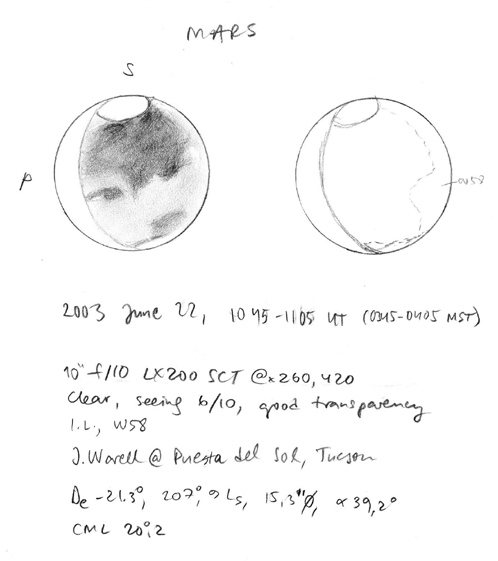 MARS
S
P
W58
2003 June 22, 1045-1105 UT (0345-0405 MST)
10" f/10 LX200 SCT @ x260, 420
Clear, seeing 6/10, good transparency
I.L., W58
J. Warell @ Puesta del Sol, Tucson
De -21.3°, 207°,9 Ls, 15,3"ø, α 39,2°
CML 20°,2